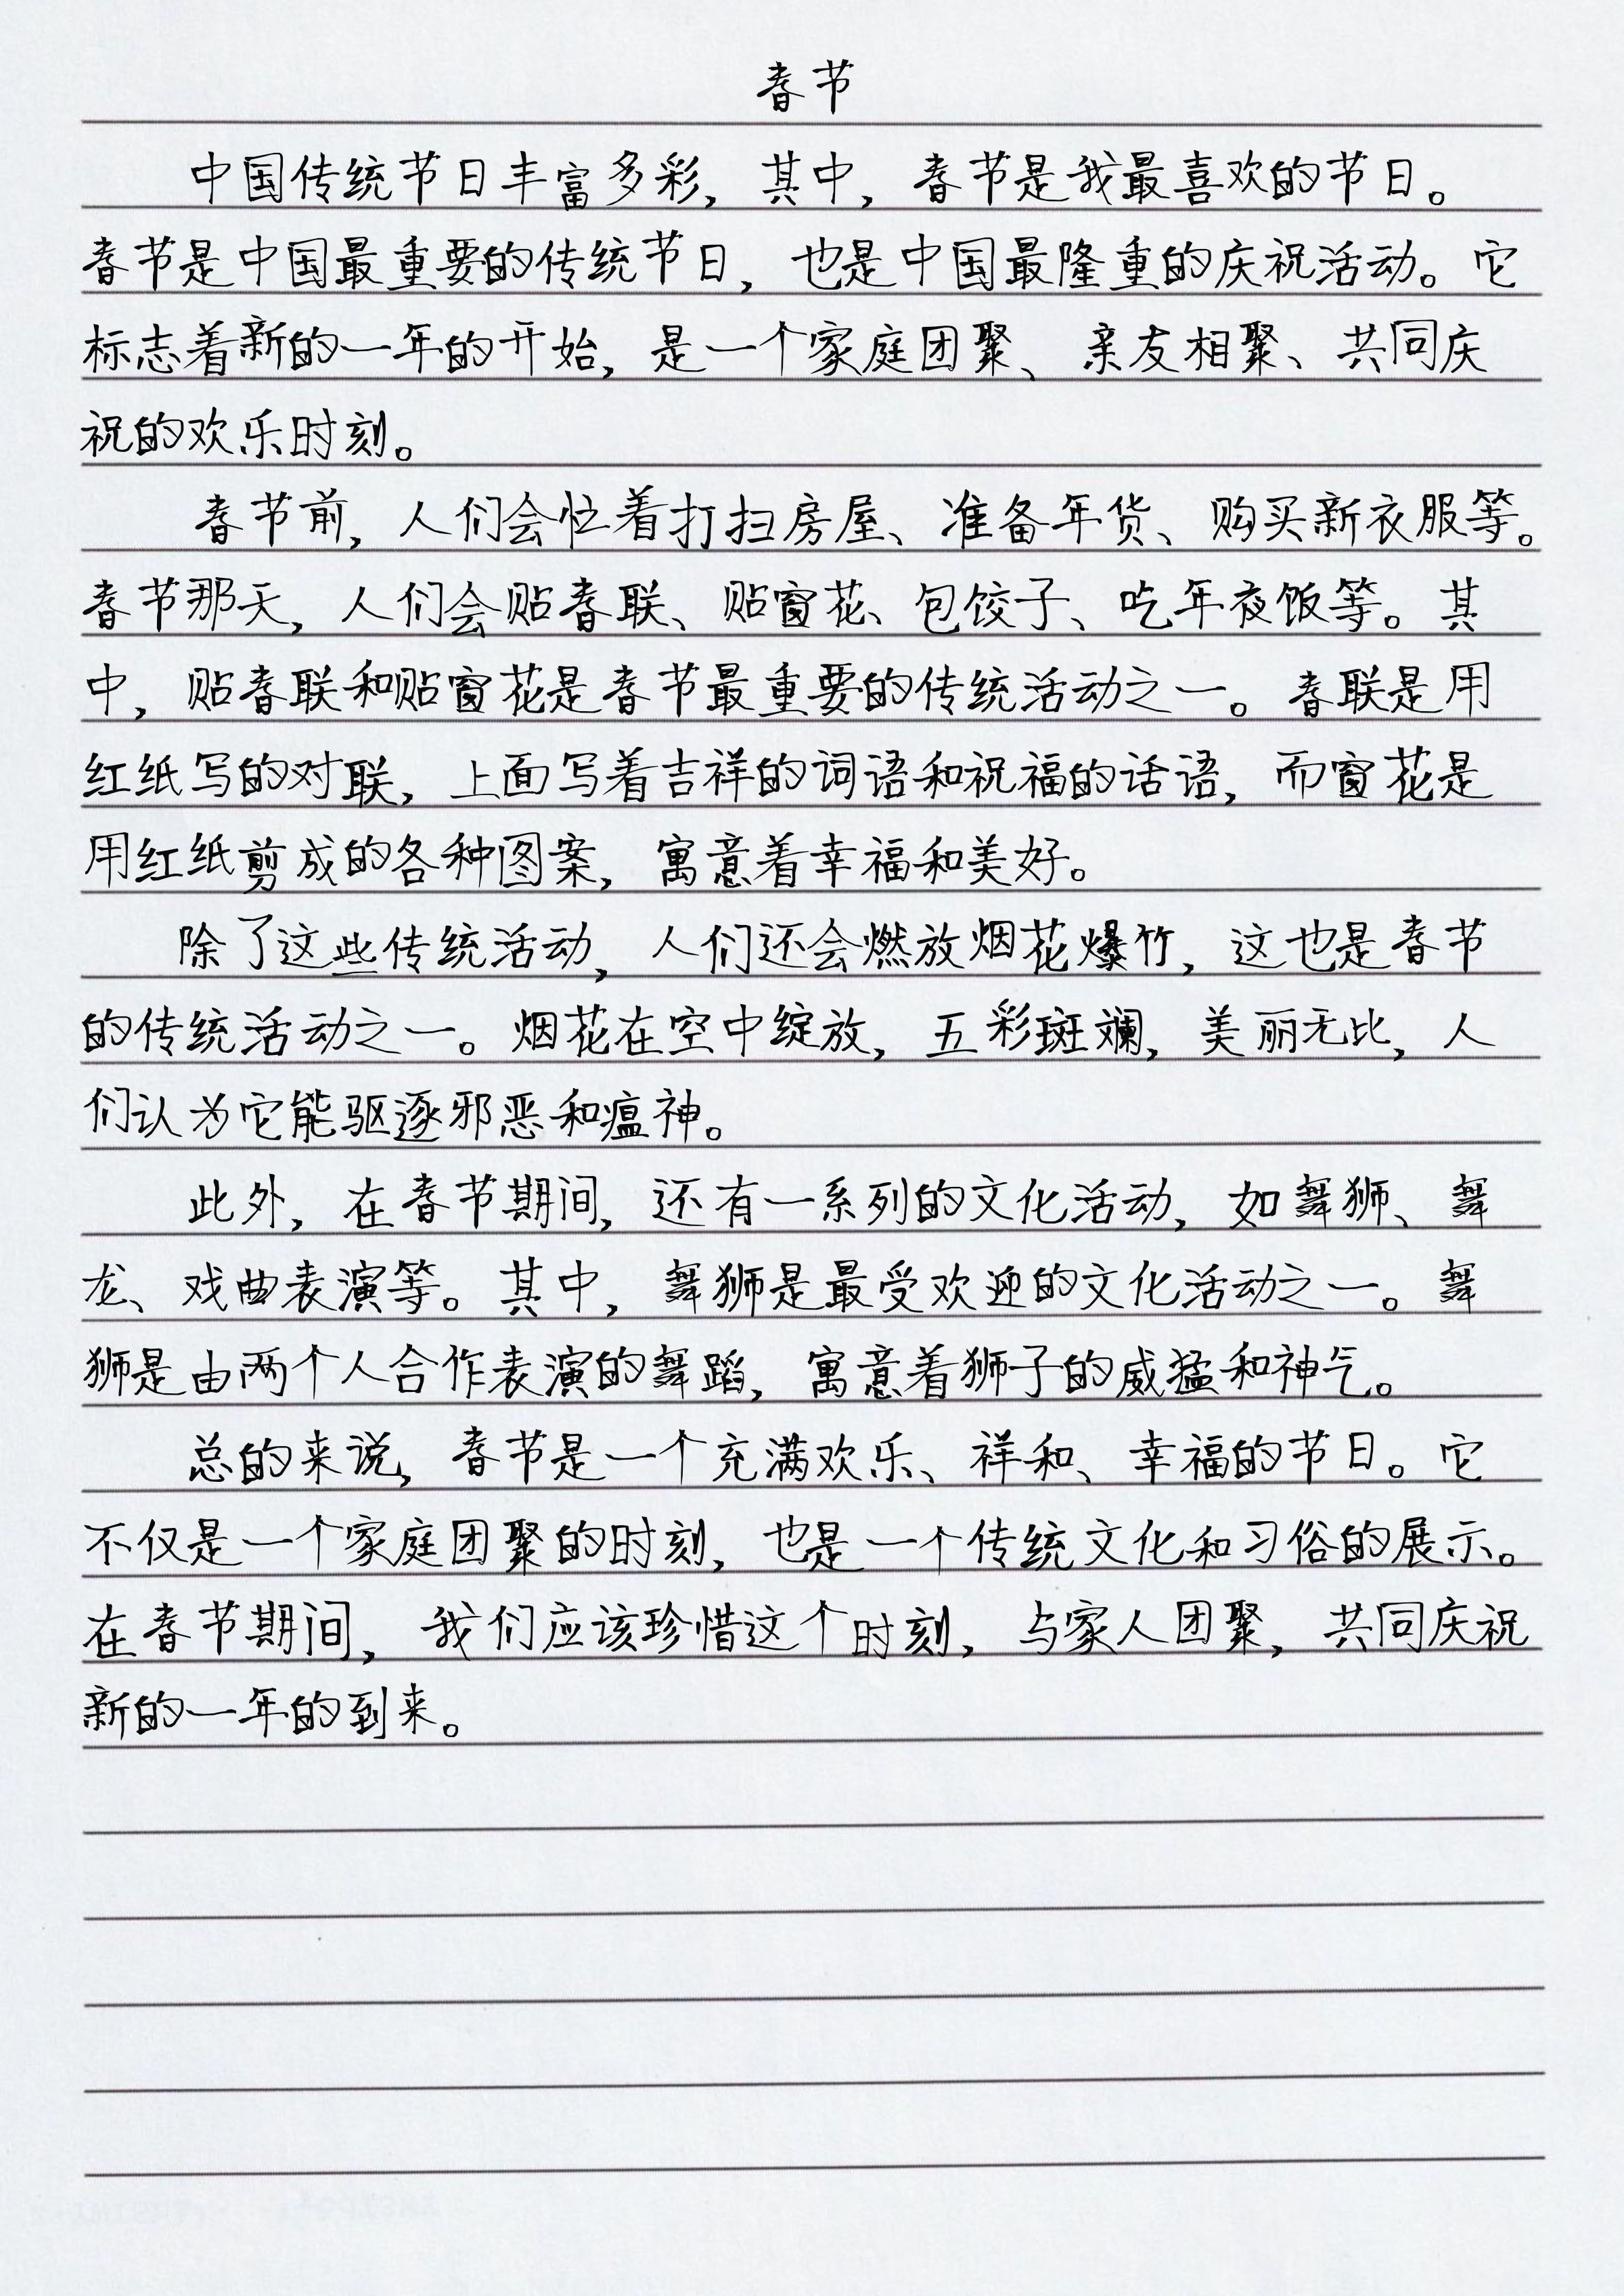 春节
中国传统节日丰富多彩，其中，春节是我最喜欢的节日。
春节是中国最重要的传统节日，也是中国最隆重的庆祝活动。它
标志着新的一年的开始，是一个家庭团聚、亲友相聚、共同庆
祝的欢乐时刻。
春节前，人们会忙着打扫房屋、准备年货、购买新衣服等。
春节那天，人们会贴春联、贴窗花、包饺子、吃年夜饭等。其
中，贴春联和贴窗花是春节最重要的传统活动之一。春联是用
红纸写的对联，上面写着吉祥的词语和祝福的话语，而窗花是
用红纸剪成的各种图案，寓意着幸福和美好。
除了这些传统活动，人们还会燃放烟花爆竹，这也是春节
的传统活动之一。烟花在空中绽放，五彩斑斓，美丽无比，人
们认为它能驱逐邪恶和瘟神。
此外，在春节期间，还有一系列的文化活动，如舞狮、舞
龙、戏曲表演等。其中，舞狮是最受欢迎的文化活动之一。舞
狮是由两个人合作表演的舞蹈，寓意着狮子的威猛和神气。
总的来说，春节是一个充满欢乐、祥和、幸福的节日。它
不仅是一个家庭团聚的时刻，也是一个传统文化和习俗的展示。
在春节期间，我们应该珍惜这个时刻，与家人团聚，共同庆祝
新的一年的到来。